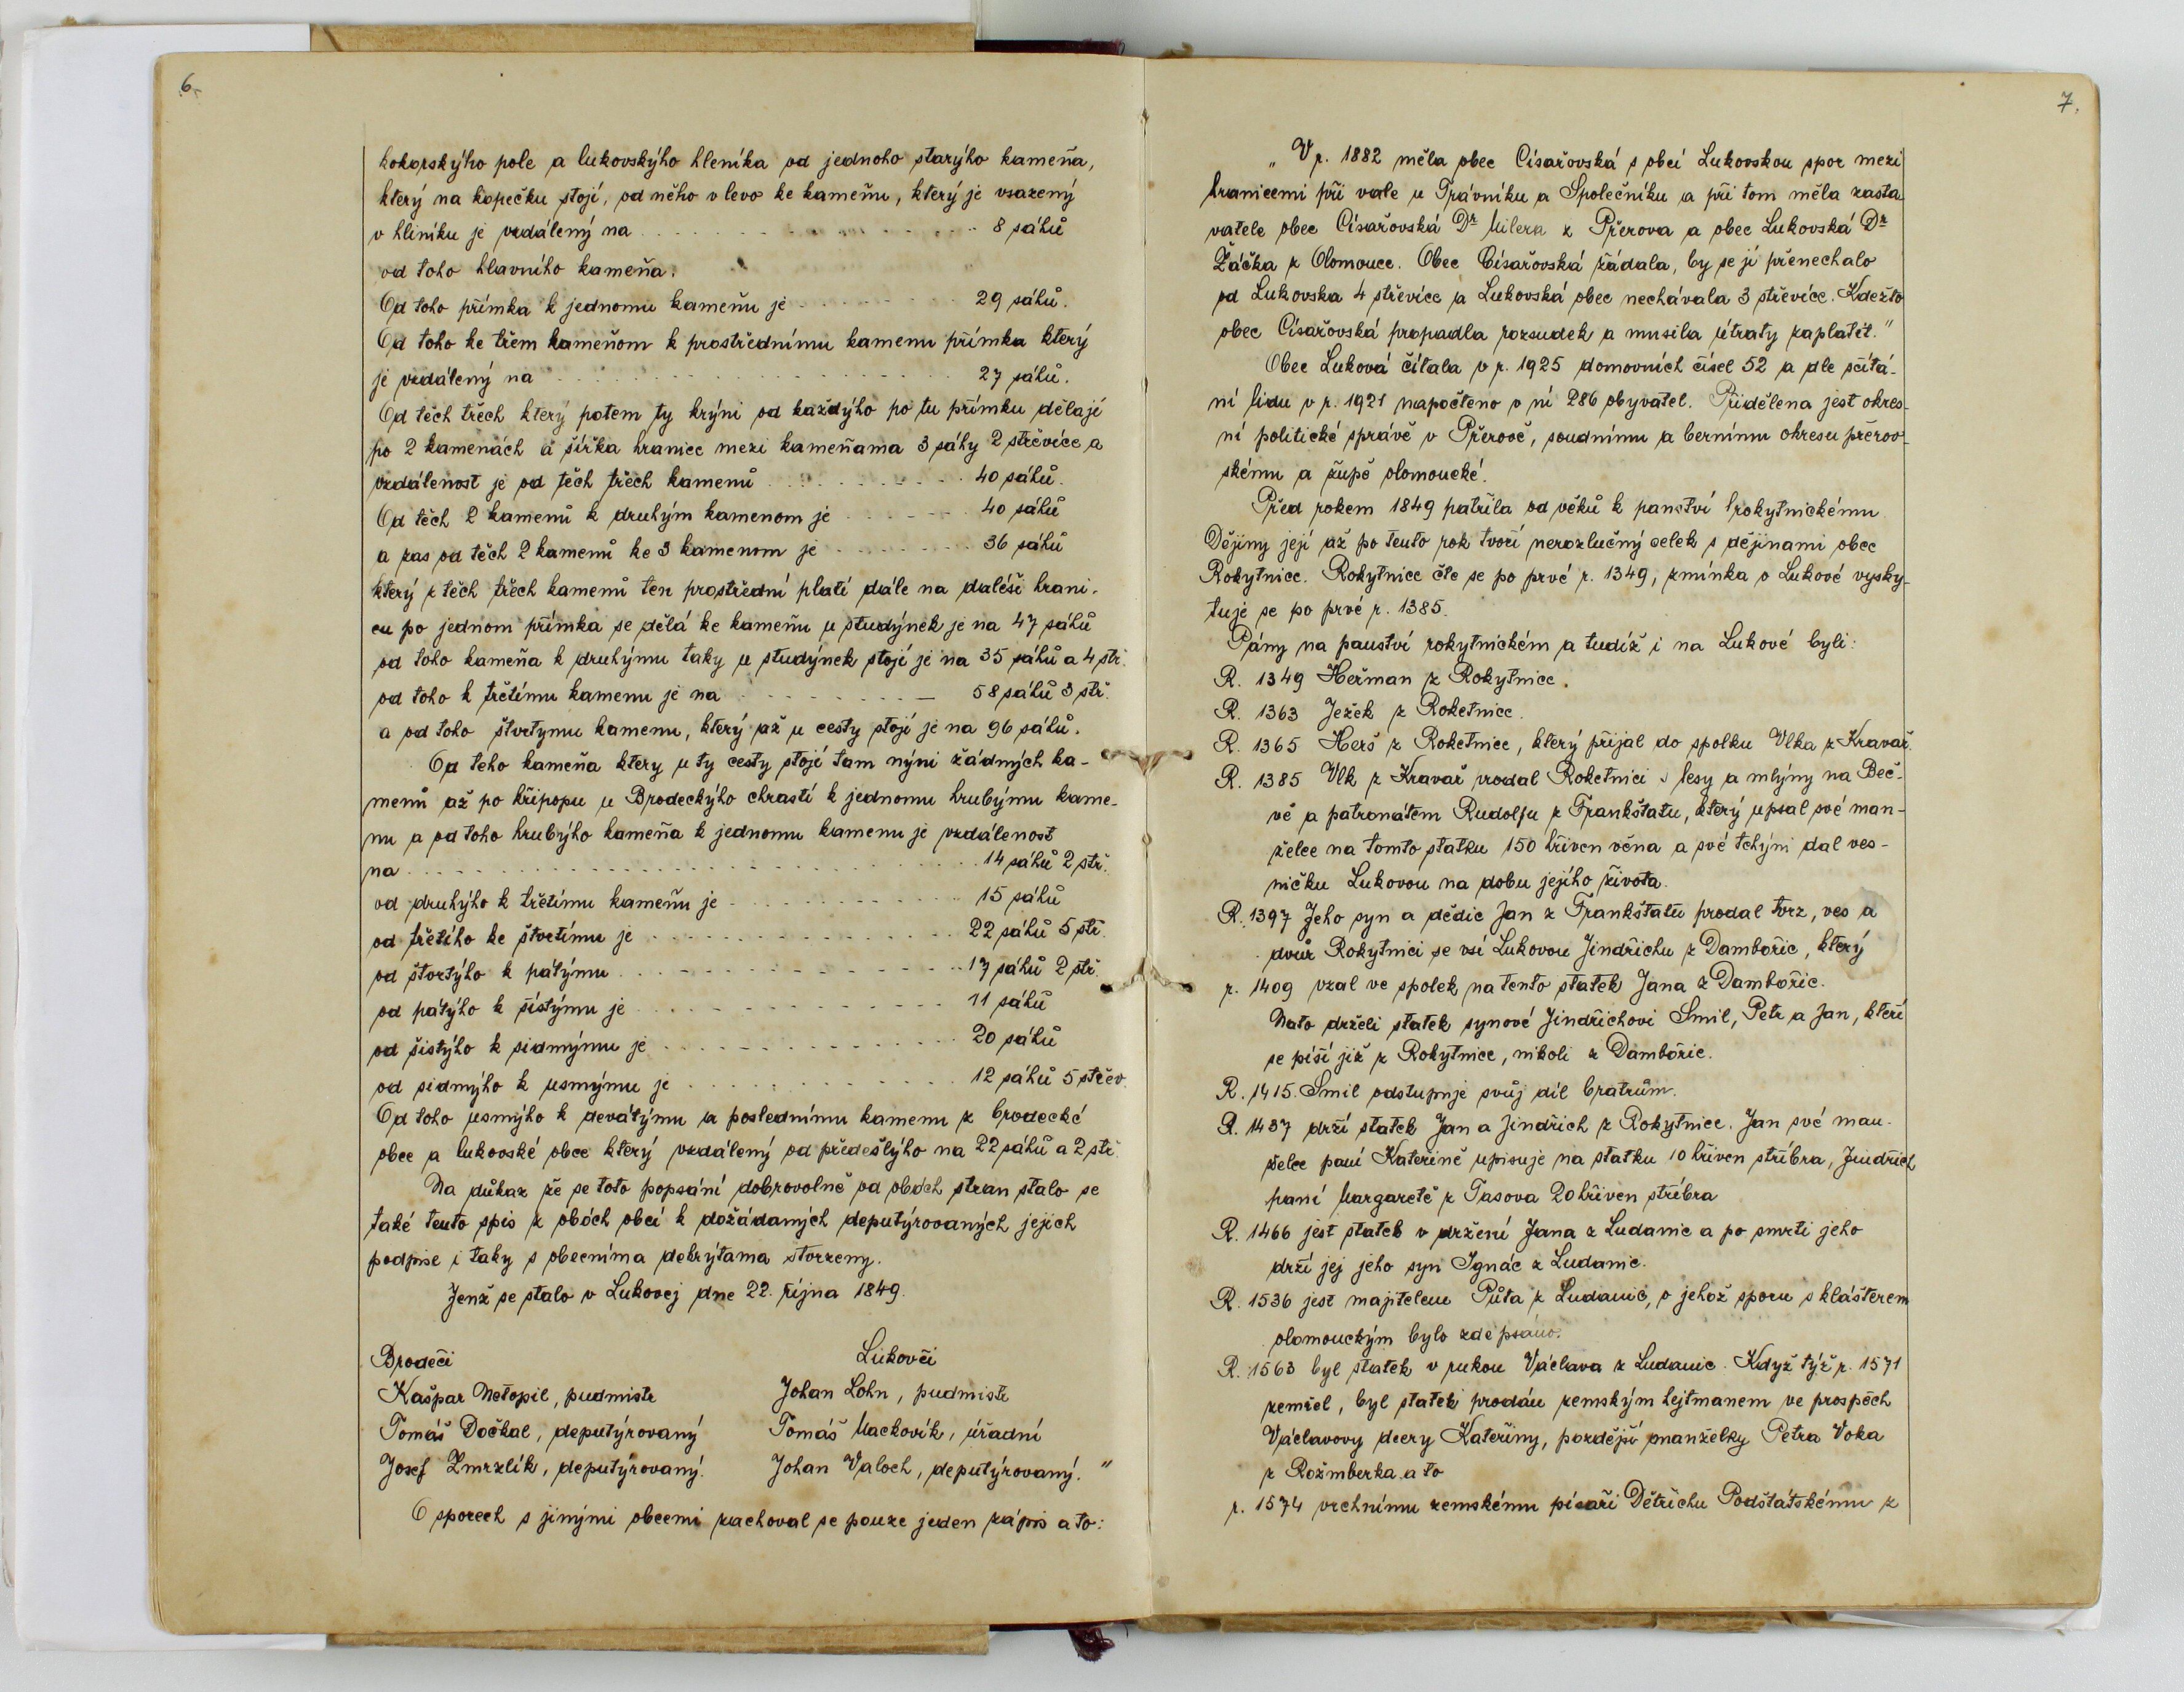 6.
kokorskýho pole a lukovskýho hleníka od jednoho starýho kameňa,
který na kopečku stojí, od něho v levo ke kameňu, který je vsazený
v hliníku je vzdálený na . . . . . . . . . . 8 sáhů
od toho hlavního kameňa.
Od toho přímka k jednomu kameňu je . . . . . . . . 29 sáhů.
Od toho ke třem kameňom k prostřednímu kamenu přímka který
je vzdálený na . . . . . . . . . . . . 27 sáhů.
Od těch třech který potem ty krýni od každýho po tu přímku dělají
po 2 kamenách a šířka hranice mezi kameňama 3 sáhy 2 střevíce a
vzdálenost je od těch třech kamenů . . . . . . . . . 40 sáhů.
Od těch 2 kamenů k druhým kamenom je . . . . . . 40 sáhů
a zas od těch 2 kamenů ke 3 kamenom je . . . . . . . . 36 sáhů
který z těch třech kamenů ten prostřední platí dále na daléší hrani-
cu po jednom přímka se dělá ke kameňu u studýnek je na 47 sáhů
od toho kameňa k druhýmu taky u studýnek stojí je na 35 sáhů a 4 stř.
od toho k třetímu kamenu je na . . . . . . . . 58 sáhů 3 stř.
a od toho štvrtymu kamenu, který až u cesty stojí je na 96 sáhů.
Od teho kameňa ktery u ty cesty stojí tam nýni žádných ka-
menů až po křipopu u Brodeckýho chrastí k jednomu hrubýmu kame-
nu a od toho hrubýho kameňa k jednomu kamenu je vzdálenost
na . . . . . . . . . . . . . . . . 14 sáhů 2 stř.
od druhýho k třetímu kameňu je . . . . . . . . . . 15 sáhů
od třetího ke štvrtímu je . . . . . . . . . . . . 22 sáhů 5 stř.
od štvrtýho k pátýmu . . . . . . . . . . . . . 17 sáhů 2 stř.
od pátýho k šístýmu je . . . . . . . . . . . . 11 sáhů
od šistýho k sidmýmu je . . . . . . . . . . . . 20 sáhů
od sidmýho k usmýmu je . . . . . . . . . . . 12 sáhů 5 střev.
Od toho usmýho k devátýmu a poslednímu kamenu z brodecké
obce a lukovské obce který vzdálený od předešlýho na 22 sáhů a 2 stř.
Na důkaz že se toto popsání dobrovolně od oboch stran stalo se
také tento spis z obóch obcí k dožádaných deputýrovaných jejich
podpise i taky s obecníma dekrýtama stvrzeny.
Jenž se stalo v Lukovej dne 22. října 1849.
Brodečí Lukovčí
Kašpar Netopil, pudmistr Johan Lohn, pudmistr
Tomáš Dočkal, deputýrovaný Tomáš Mackovík, úřadní
Josef Zmrzlík, deputýrovaný. Johan Valoch, deputýrovaný."
O sporech s jinými obcemi zachoval se pouze jeden zápis a to:
7.
„V r. 1882 měla obec Císařovská s obcí Lukovskou spor mezi
hranicemi při vale u Trávníku a Společníku a při tom měla zasta-
vatele obec Císařovská Dr Milera z Přerova a obec Lukovská Dr
Žáčka z Olomouce. Obec Císařovská žádala, by se jí přenechalo
od Lukovska 4 střevíce a Lukovská obec nechávala 3 střevíce. Kdežto
obec Císařovská propadla rozsudek a musila útraty zaplatit."
Obec Luková čítala v r. 1925 domovních čísel 52 a dle sčítá-
ní lidu v r. 1921 napočteno v ní 286 obyvatel. Přidělena jest okres-
ní politické správě v Přerově, soudnímu a bernímu okresu přerov-
skému a župě olomoucké.
Před rokem 1849 patřila od věků k panství rokytnickému
Dějiny její až po tento rok tvoří nerozlučný celek s dějinami obce
Rokytnice. Rokytnice čte se po prvé r. 1349, zmínka o Lukové vysky-
tuje se po prvé r. 1385.
Pány na panství rokytnickém a tudíž i na Lukové byli:
R. 1349 Heřman z Rokytnice.
R. 1363 Ježek z Roketnice.
R. 1365 Herš z Roketnice, který přijal do spolku Vlka z Kravař.
R. 1385 Vlk z Kravař prodal Roketnici s lesy a mlýny na Beč-
vě a patronátem Rudolfu z Frankštatu, který upsal své man-
želce na tomto statku 150 hřiven věna a své tchýni dal ves-
ničku Lukovou na dobu jejího života.
R. 1397 Jeho syn a dědic Jan z Frankštatu prodal tvrz, ves a
dvůr Rokytnici se vsí Lukovou Jindřichu z Dambořic, který
r. 1409 vzal ve spolek na tento statek Jana z Dambořic.
Nato drželi statek synové Jindřichovi Smil, Petr a Jan, kteří
se píší již z Rokytnice, nikoli z Dambořic.
R. 1415. Smil odstupuje svůj díl bratrům.
R. 1437 drží statek Jan a Jindřich z Rokytnice. Jan své man-
želce paní Kateřině upisuje na statku 10 hřiven stříbra, Jindřich
paní Margaretě z Tasova 20 hřiven stříbra
R. 1466 jest statek v držení Jana z Ludanic a po smrti jeho
drží jej jeho syn Ignác z Ludanic.
R. 1536 jest majitelem Půta z Ludanic, o jehož sporu s klášterem
olomouckým bylo zde psáno.
R. 1563 byl statek v rukou Václava z Ludanic. Když týž r. 1571
zemřel, byl statek prodán zemským hejtmanem ve prospěch
Václavovy dcery Kateřiny, pozdější manželky Petra Voka
z Rožmberka a to
r. 1574 vrchnímu zemskému písaři Dětřichu Podštátskému z